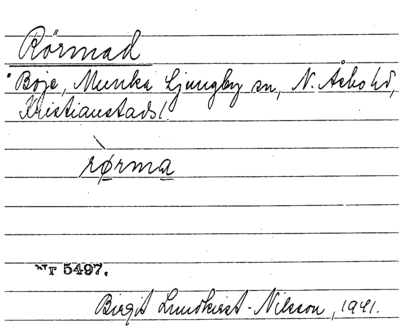 Rörmad
Böje, Munka Ljungby sn, N. Åsbo hd,
Kristianstads l.
rø̀rma
Nr 5497.
Birgit Lundkvist-Nilsson, 1941.